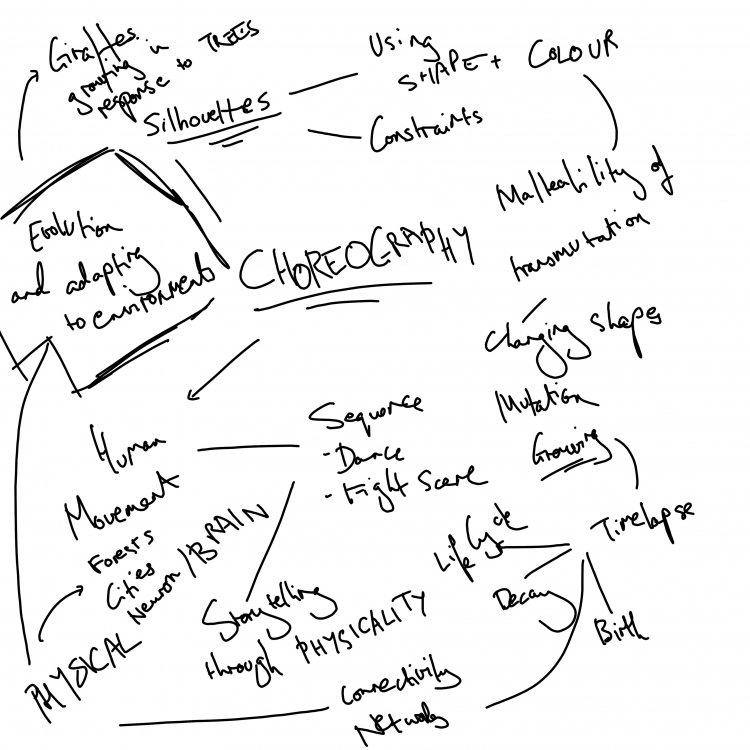 Giraffes
growing in
response to TREES
Silhouettes
Using
SHAPE +
COLOUR
Constraints
Malleability of
transmutation
Evolution
and adapting
to environments
CHOREOGRAPHY
Changing shapes
Mutation
Growing
Human
Movement
Sequence
- Dance
- Fight Scene
Forests
Cities
Neuron / BRAIN
PHYSICAL
Storytelling
through PHYSICALITY
Life Cycle
Timelapse
Decay
Birth
Connectivity
Networks